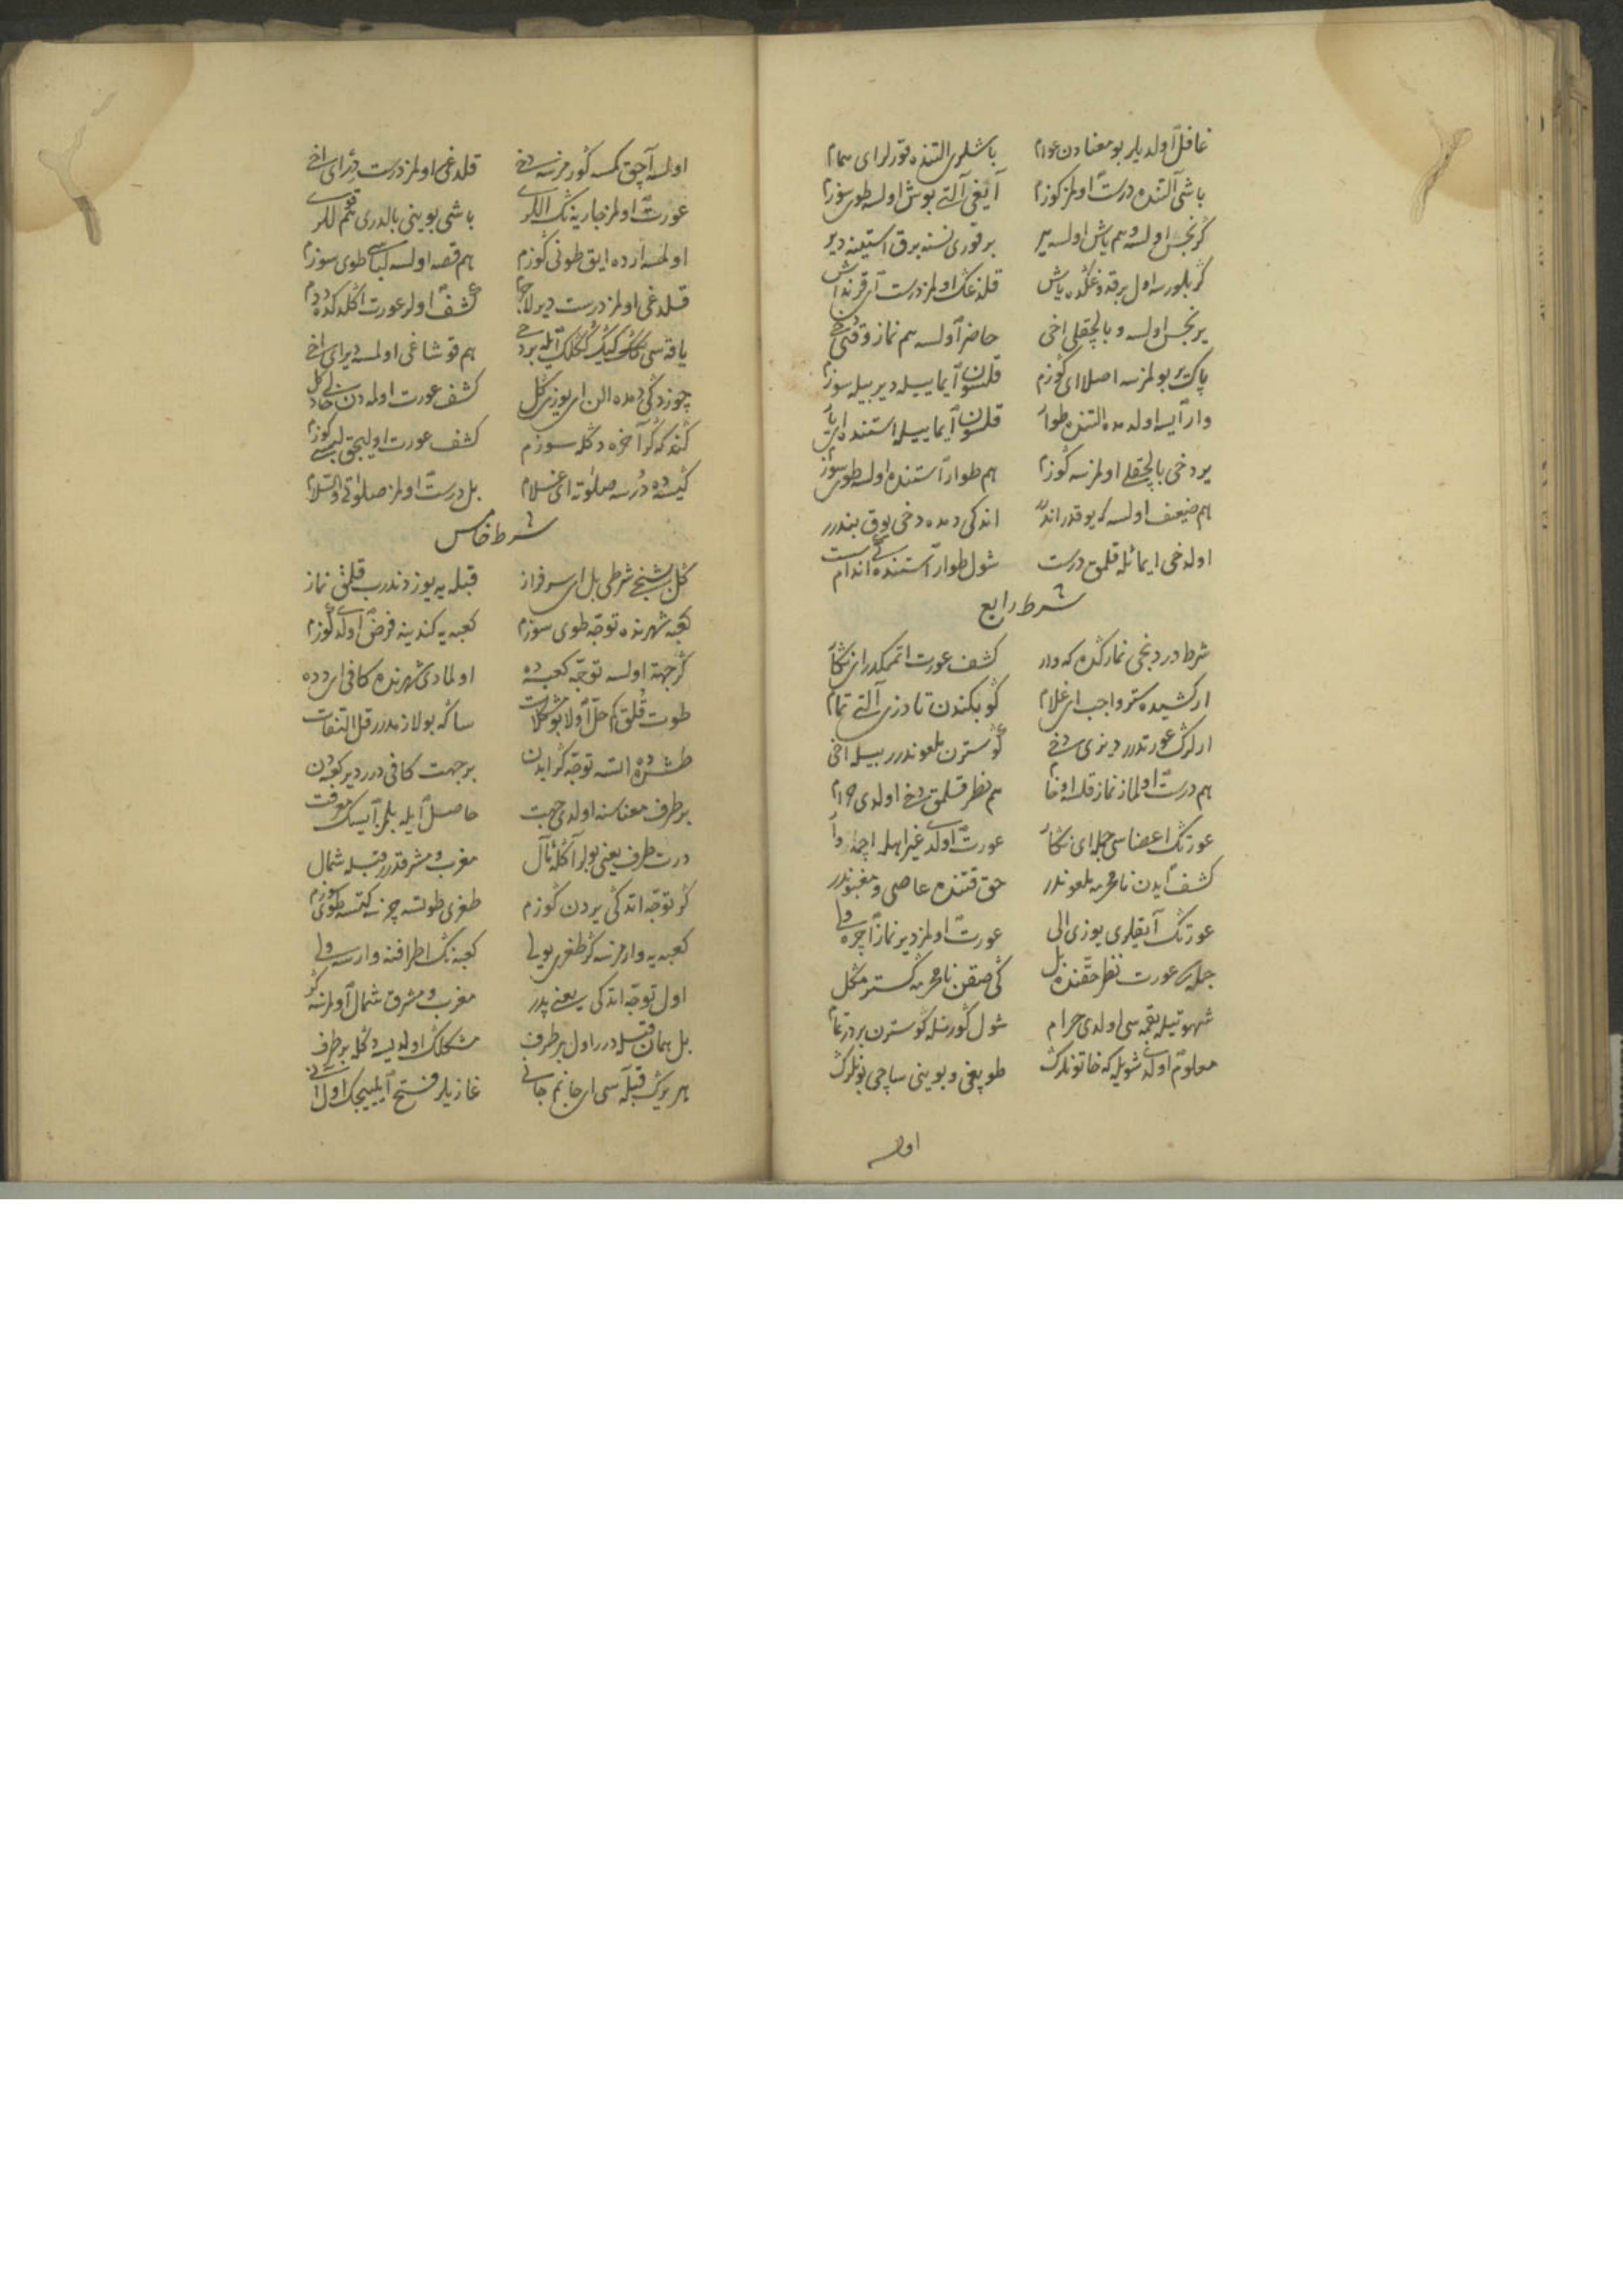 غافل اولدیلر بو معنادن عوام باشلری التنده قورلر ای همام
باشی التنده درست اولمز کوزم آیغی آلتی بوش اولسه طوی سوزم
کر نجس اولسه و هم یاش اولسه یر بر قوری نسنه براق استینه دیر
کر بلورسه اول یر قودوغکده یاش قلدغک اولمز درست ای قرنداش
یر نجس اولسه و بالچقلی اخی حاضر اولسه هم نماز وقتی دخی
پاک یر بولمزسه اصلا ای کوزم قلسون ایماییله دیر بیله سوزم
وار ایسه اولدمده التنده طوار قلسون ایماییله استنده ای یار
یر دخی بالچقلی اولمزسه کوزم هم طوار استنده اولسه طوی سوزم
هم ضعیف اولسه که یوقدر اندر اندکی دمده دخی یوق بندرر
اولدخی ایمائله قلمق درست شول طوار استنده
شرط رابع
شرط دردنجی نمازکده که وار کشف عورت اتممکدر ای نکار
ار کشیده ستر واجب ای غلام کوبکندن تا دزی آلتی تمام
ارلرک عورتدرر دیزی دخی کوسترن ملعوندرر بیله اخی
هم درست اولماز نماز قلسه هم نظر قلمق دخی اولدی حرام
عورتک اعضاسی جمله ای نکار عورت اولدی غیر اهله اچمه وار
کشف ایدن نامحرمه ملعوندر حق قتنده عاصی و مغبوندر
عورتک آیقلری یوزی الی عورت اولمز دیر نماز اچره ولی
جمله عورت نظر حقنده بل کی صقن نامحرمه کسترمکل
شهوتیله بقمه سی اولدی حرام شول کورنله کوسترن بردر تمام
معلوم اولدی شویله که خاتونلرک طوپغی و بوینی ساچی بونلرک
اولسه
اولسه آچق کمسه کورمزسه دخی قلدغی اولمز درست دیر ای اخی
عورت اولمز جاریه نک اللری باشی بوینی بالدری هم قوللری
اولمسه ارده ایق طونی کوزم هم قصه اولسه لباسی طوی سوزم
قلدغی اولمز درست دیر لاجرم کشف اولر عورت اکلدکده دم
یاقه سی کنک کیک کنکلک ایله بر دخی هم قوشاغی اولمسه دیر ای اخی
چوزدکی دمده الن ای یوزی کل کشف عورت اولمه دن خالی دکل
کندکه کر آخره دکله سوزم کشف عورت اولیجق لبسی کوزم
کیسه ده درسه صلوته ای غلام بل درست اولمز صلوتی والسلام
شرط خامس
کل بشنجی شرطی بل ای سرفراز قبله یه یوز دندرب قلمق نماز
کعبه شهرنده توجه طوی سوزم کعبه یه کندینه فرض اولدی کوزم
کر جهته اولسه توجه کعبه ده اولمادی شهرنده کافی ای دده
طوت قلق کم حل اولا بو مشکلات ساکه بو لازمدرر قل التفات
طشره ده السه توجه کر ایدن بر جهت کافی درر دیر کعبه دن
بر طرف معناسنه اولدی جهت حاصل ایله بلمز ایسک معرفت
درت طرف یعنی بولر اکله نال مغرب و مشرقدرر قبله شمال
کر توجه اتدکی یردن کوزم طغری طوتسه چزی کتسه طوی سوزم
کعبه یه وارمزسه کر طغری یولی کعبه نک اطرافنه وارسه ولی
اول توجه اتدکی یر یعنی پدر مغرب و مشرق شمال اولمزسه کر
بل همان قبله درر اول بر طرف مشکلک اولدیسه دکله بر طرف
هر یرک قبله سی ای جانم جانی غازیلر فتح ایلییجک اول آنی